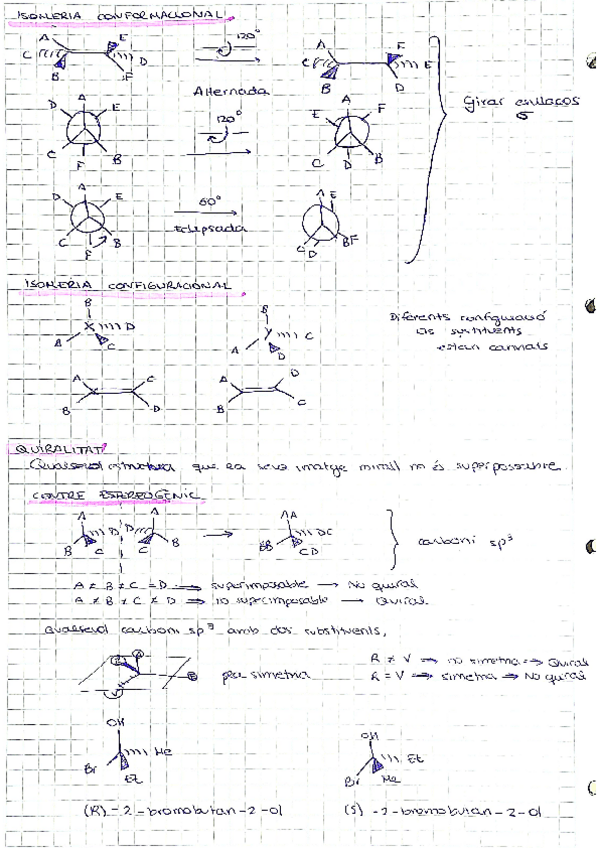 ISOMERIA CONFORMACIONAL
A E
C D
B F
120º
A F
C E
B D
Alternada
Girar enllaços
σ
A
D E
C B
F
120º
A
E F
C B
D
A
D E
C B
F
60º
Eclipsada
A E
C D
B F
ISOMERIA CONFIGURACIONAL
B
X D
A C
B
Y C
A D
Diferents configuració
els substituents
estan canviats
A C
B D
A D
B C
QUIRALITAT
Qualsevol que la seva imatge mirall no és superposable
CENTRE ESTEREOGÈNIC
A A
D D
B C C B
AA
DC
BB CD
carboni sp³
A ≠ B ≠ C = D ⟹ superimposable → No quiral
A ≠ B ≠ C ≠ D ⟹ no superimposable → Quiral
Qualsevol carboni sp³ amb dos substituents,
pla simetria
R ≠ V ⟹ no simetria → Quiral
R = V ⟹ simetria → No quiral
OH
Me
Br Et
OH
Et
Br Me
(R)-2-bromobutan-2-ol
(S)-2-bromobutan-2-ol